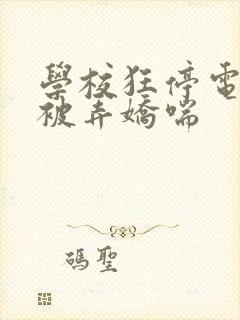 學校狂停電
被弄嬌喘
碼聖